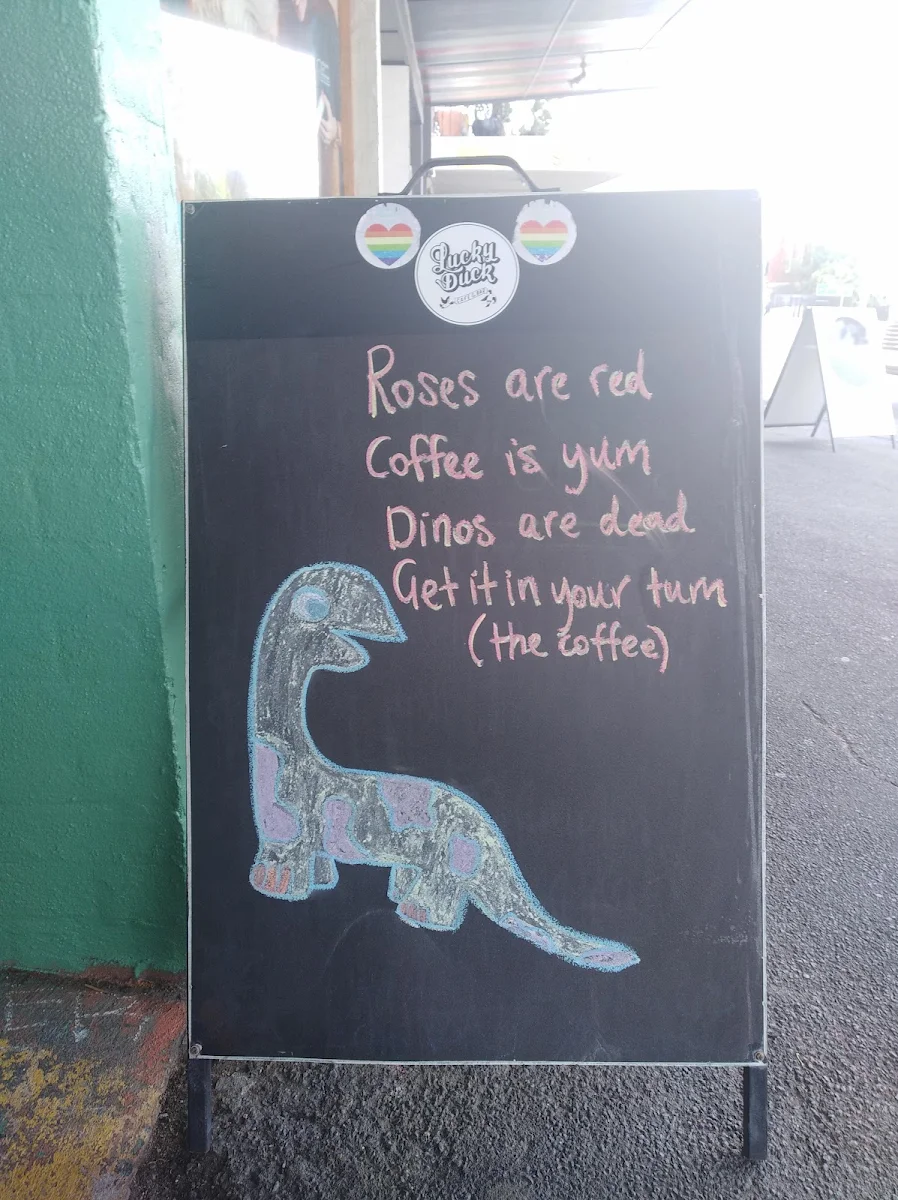 Lucky
Duck
Roses are red
Coffee is yum
Dinos are dead
Get it in your tum
(the coffee)